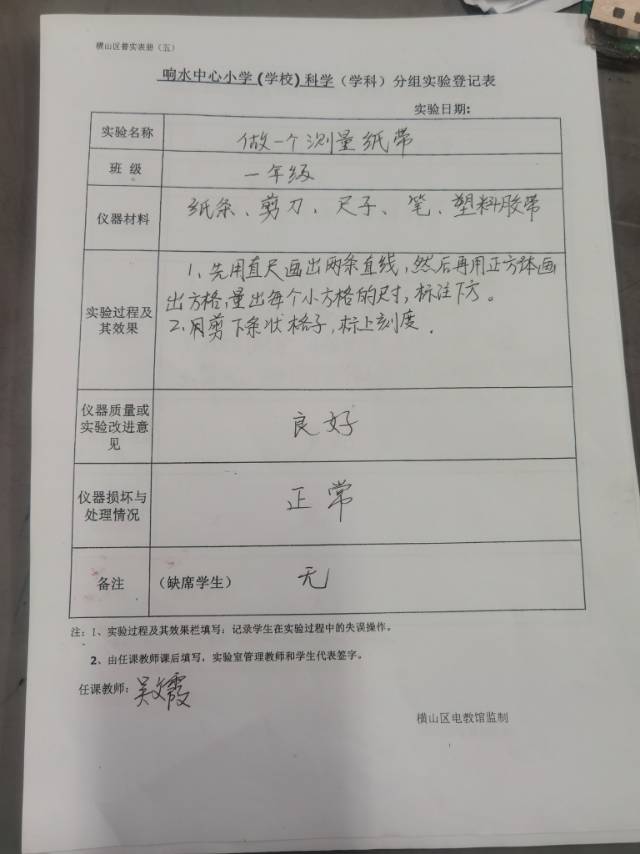 横山区普实表册（五）
响水中心小学(学校)科学（学科）分组实验登记表
实验日期:
实验名称 做一个测量纸带
班 级 一年级
仪器材料 纸条、剪刀、尺子、笔、塑料胶带
实验过程及其效果
1、先用直尺画出两条直线,然后再用正方体画
出方格,量出每个小方格的尺寸,标注下方。
2、用剪下条状格子,标上刻度.
仪器质量或
实验改进意
见
良好
仪器损坏与
处理情况
正常
备注 （缺席学生） 无
注：1、实验过程及其效果栏填写：记录学生在实验过程中的失误操作。
2、由任课教师课后填写，实验室管理教师和学生代表签字。
任课教师: 吴文霞
横山区电教馆监制